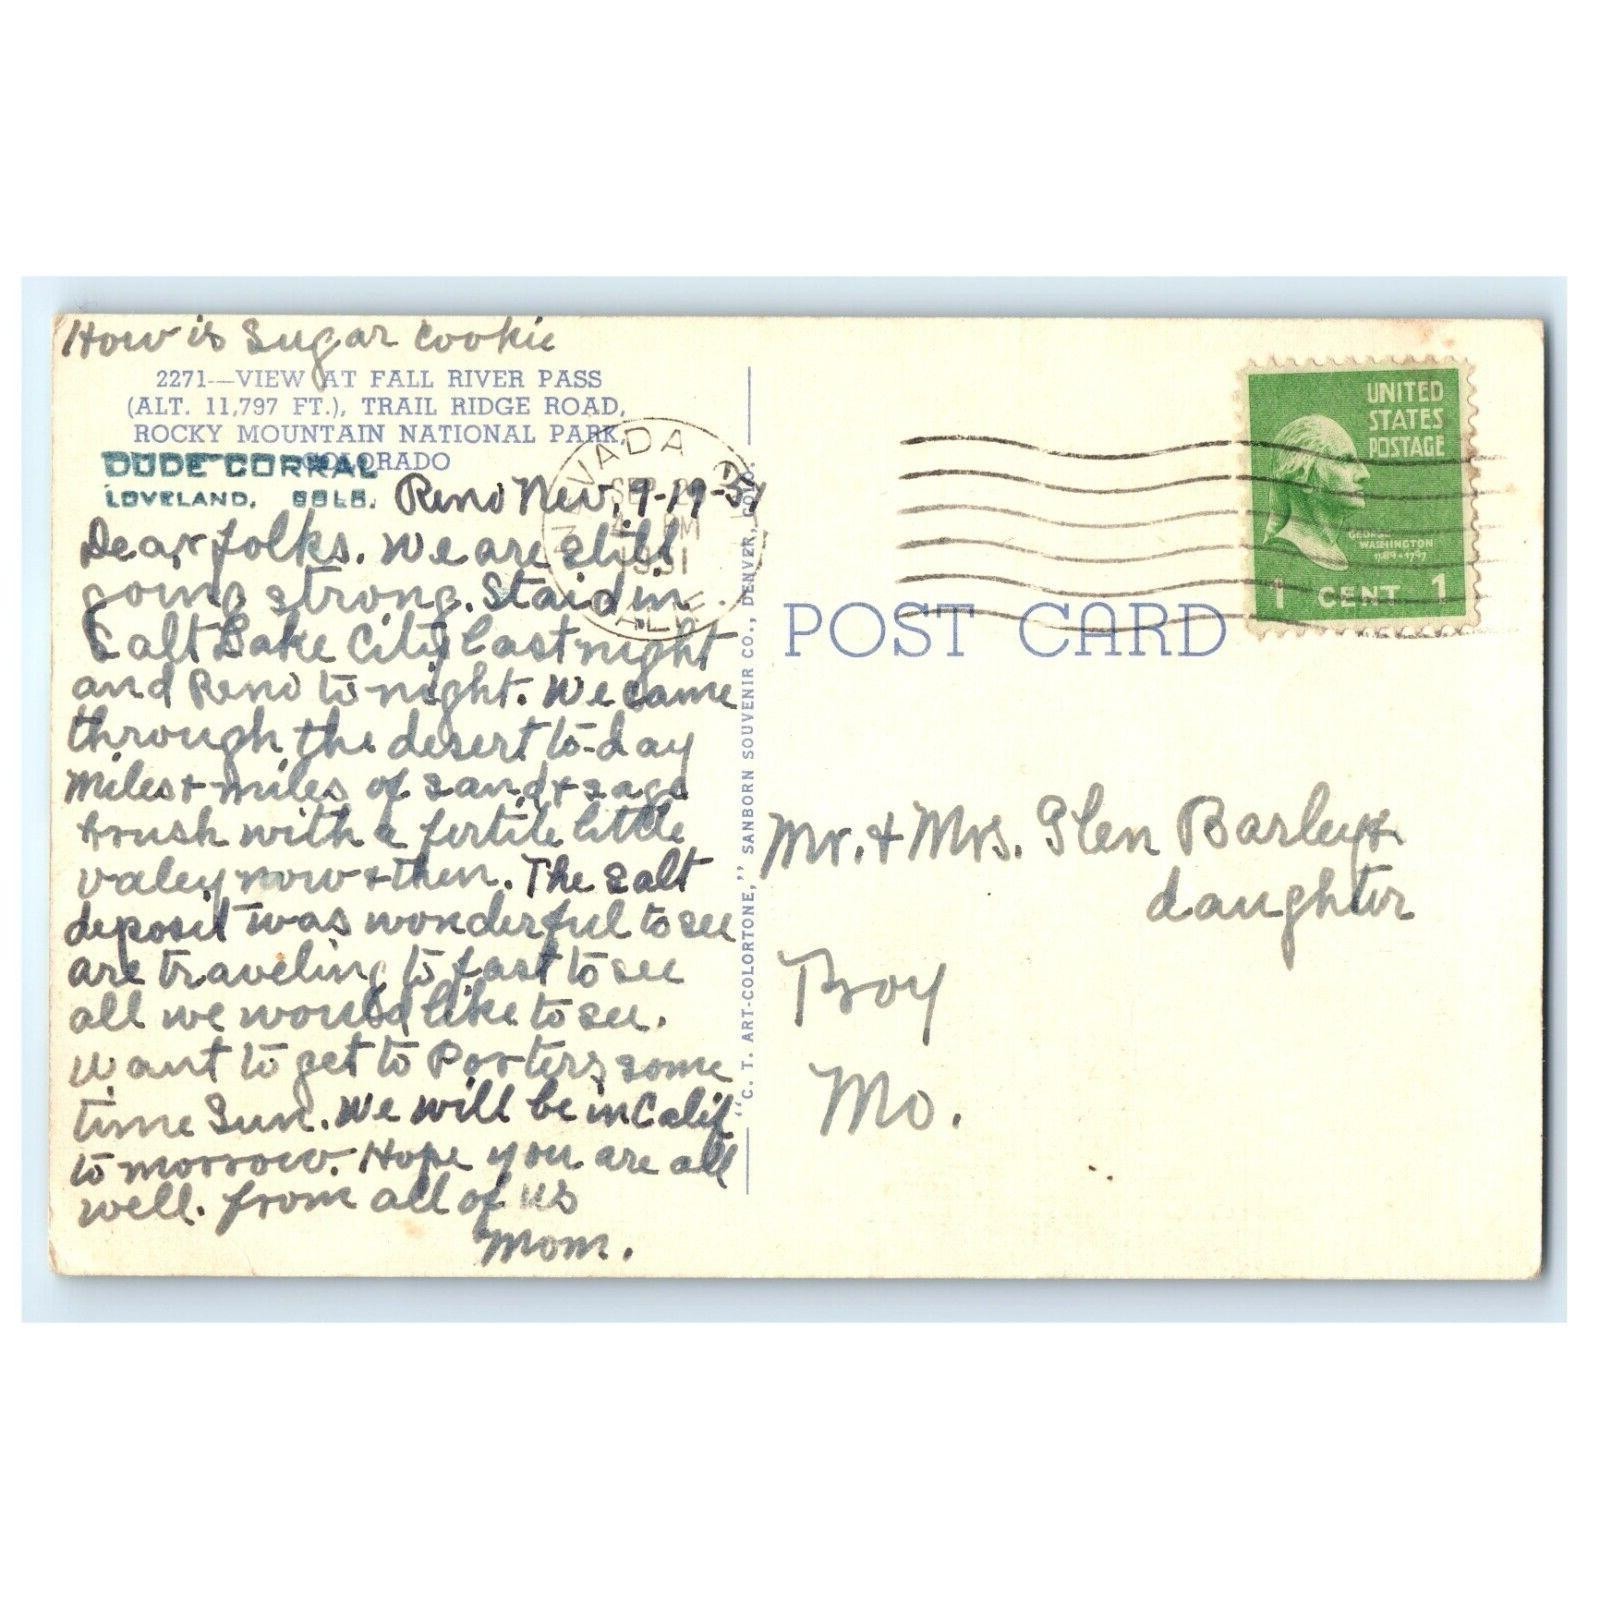 How is Sugar Cookie
2271—VIEW AT FALL RIVER PASS
(ALT. 11,797 FT.), TRAIL RIDGE ROAD,
ROCKY MOUNTAIN NATIONAL PARK,
COLORADO
DUDE CORRAL
LOVELAND, COLO.
Reno Nev, 9-19-51
Dear folks. We are still
going strong. Staid in
Salt Lake City last night
and Reno to-night. We came
through the desert to-day
miles + miles of sand + sage
brush with a fertile little
valey now + then. The salt
deposit was wonderful to see
are traveling to fast to see
all we would like to see.
Want to get to Porters some
time Sun. We will be in Calif
to morrow. Hope you are all
well. from all of us
Mom.
"C. T. ART-COLORTONE," SANBORN SOUVENIR CO., DENVER, COLO.
NEVADA
SEP
PM
1951
CALIF
POST CARD
UNITED
STATES
POSTAGE
GEORGE
WASHINGTON
1789-1797
1 CENT 1
Mr. + Mrs. Glen Barley +
daughter
Troy
Mo.